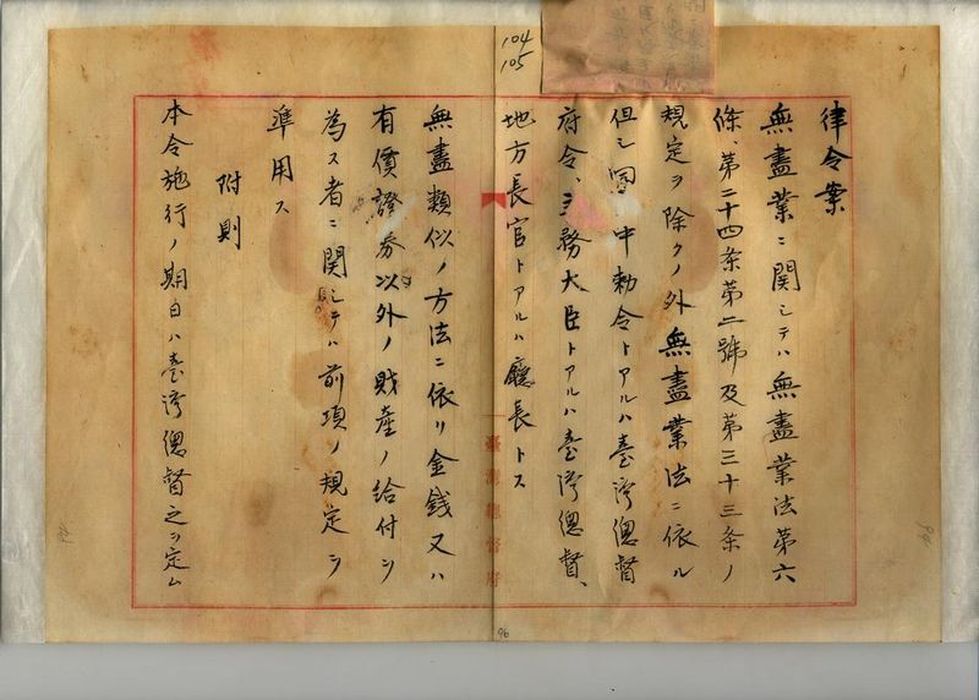 律令案
無盡業ニ関シテハ無盡業法第六
條、第二十四条第二號及第三十三条ノ
規定ヲ除クノ外無盡業法ニ依ル
但シ同中勅令トアルハ臺湾總督
府令、主務大臣トアルハ臺湾總督、
地方長官トアルハ廳長トス
無盡類似ノ方法ニ依リ金銭又ハ
有價證券以外ノ財產ノ給付ヲ
為ス者ニ関シテハ前項ノ規定ヲ
準用ス
附則
本令施行ノ期日ハ臺湾總督之ヲ定ム
104
105
臺灣總督府
96